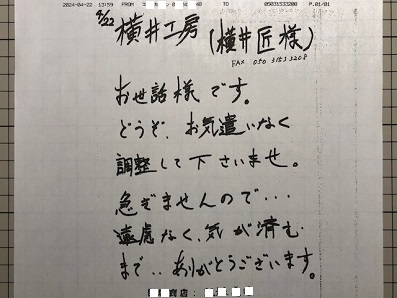 2024-04-22 13:59 FROM TO 05031533208 P.01/01
4/22 横井工房(横井匠様)
FAX 050 3153 3208
お世話様です。
どうぞ、お気遣いなく
調整して下さいませ。
急ぎませんので・・・
遠慮なく、気が済む
まで・・ありがとうございます。
商店: